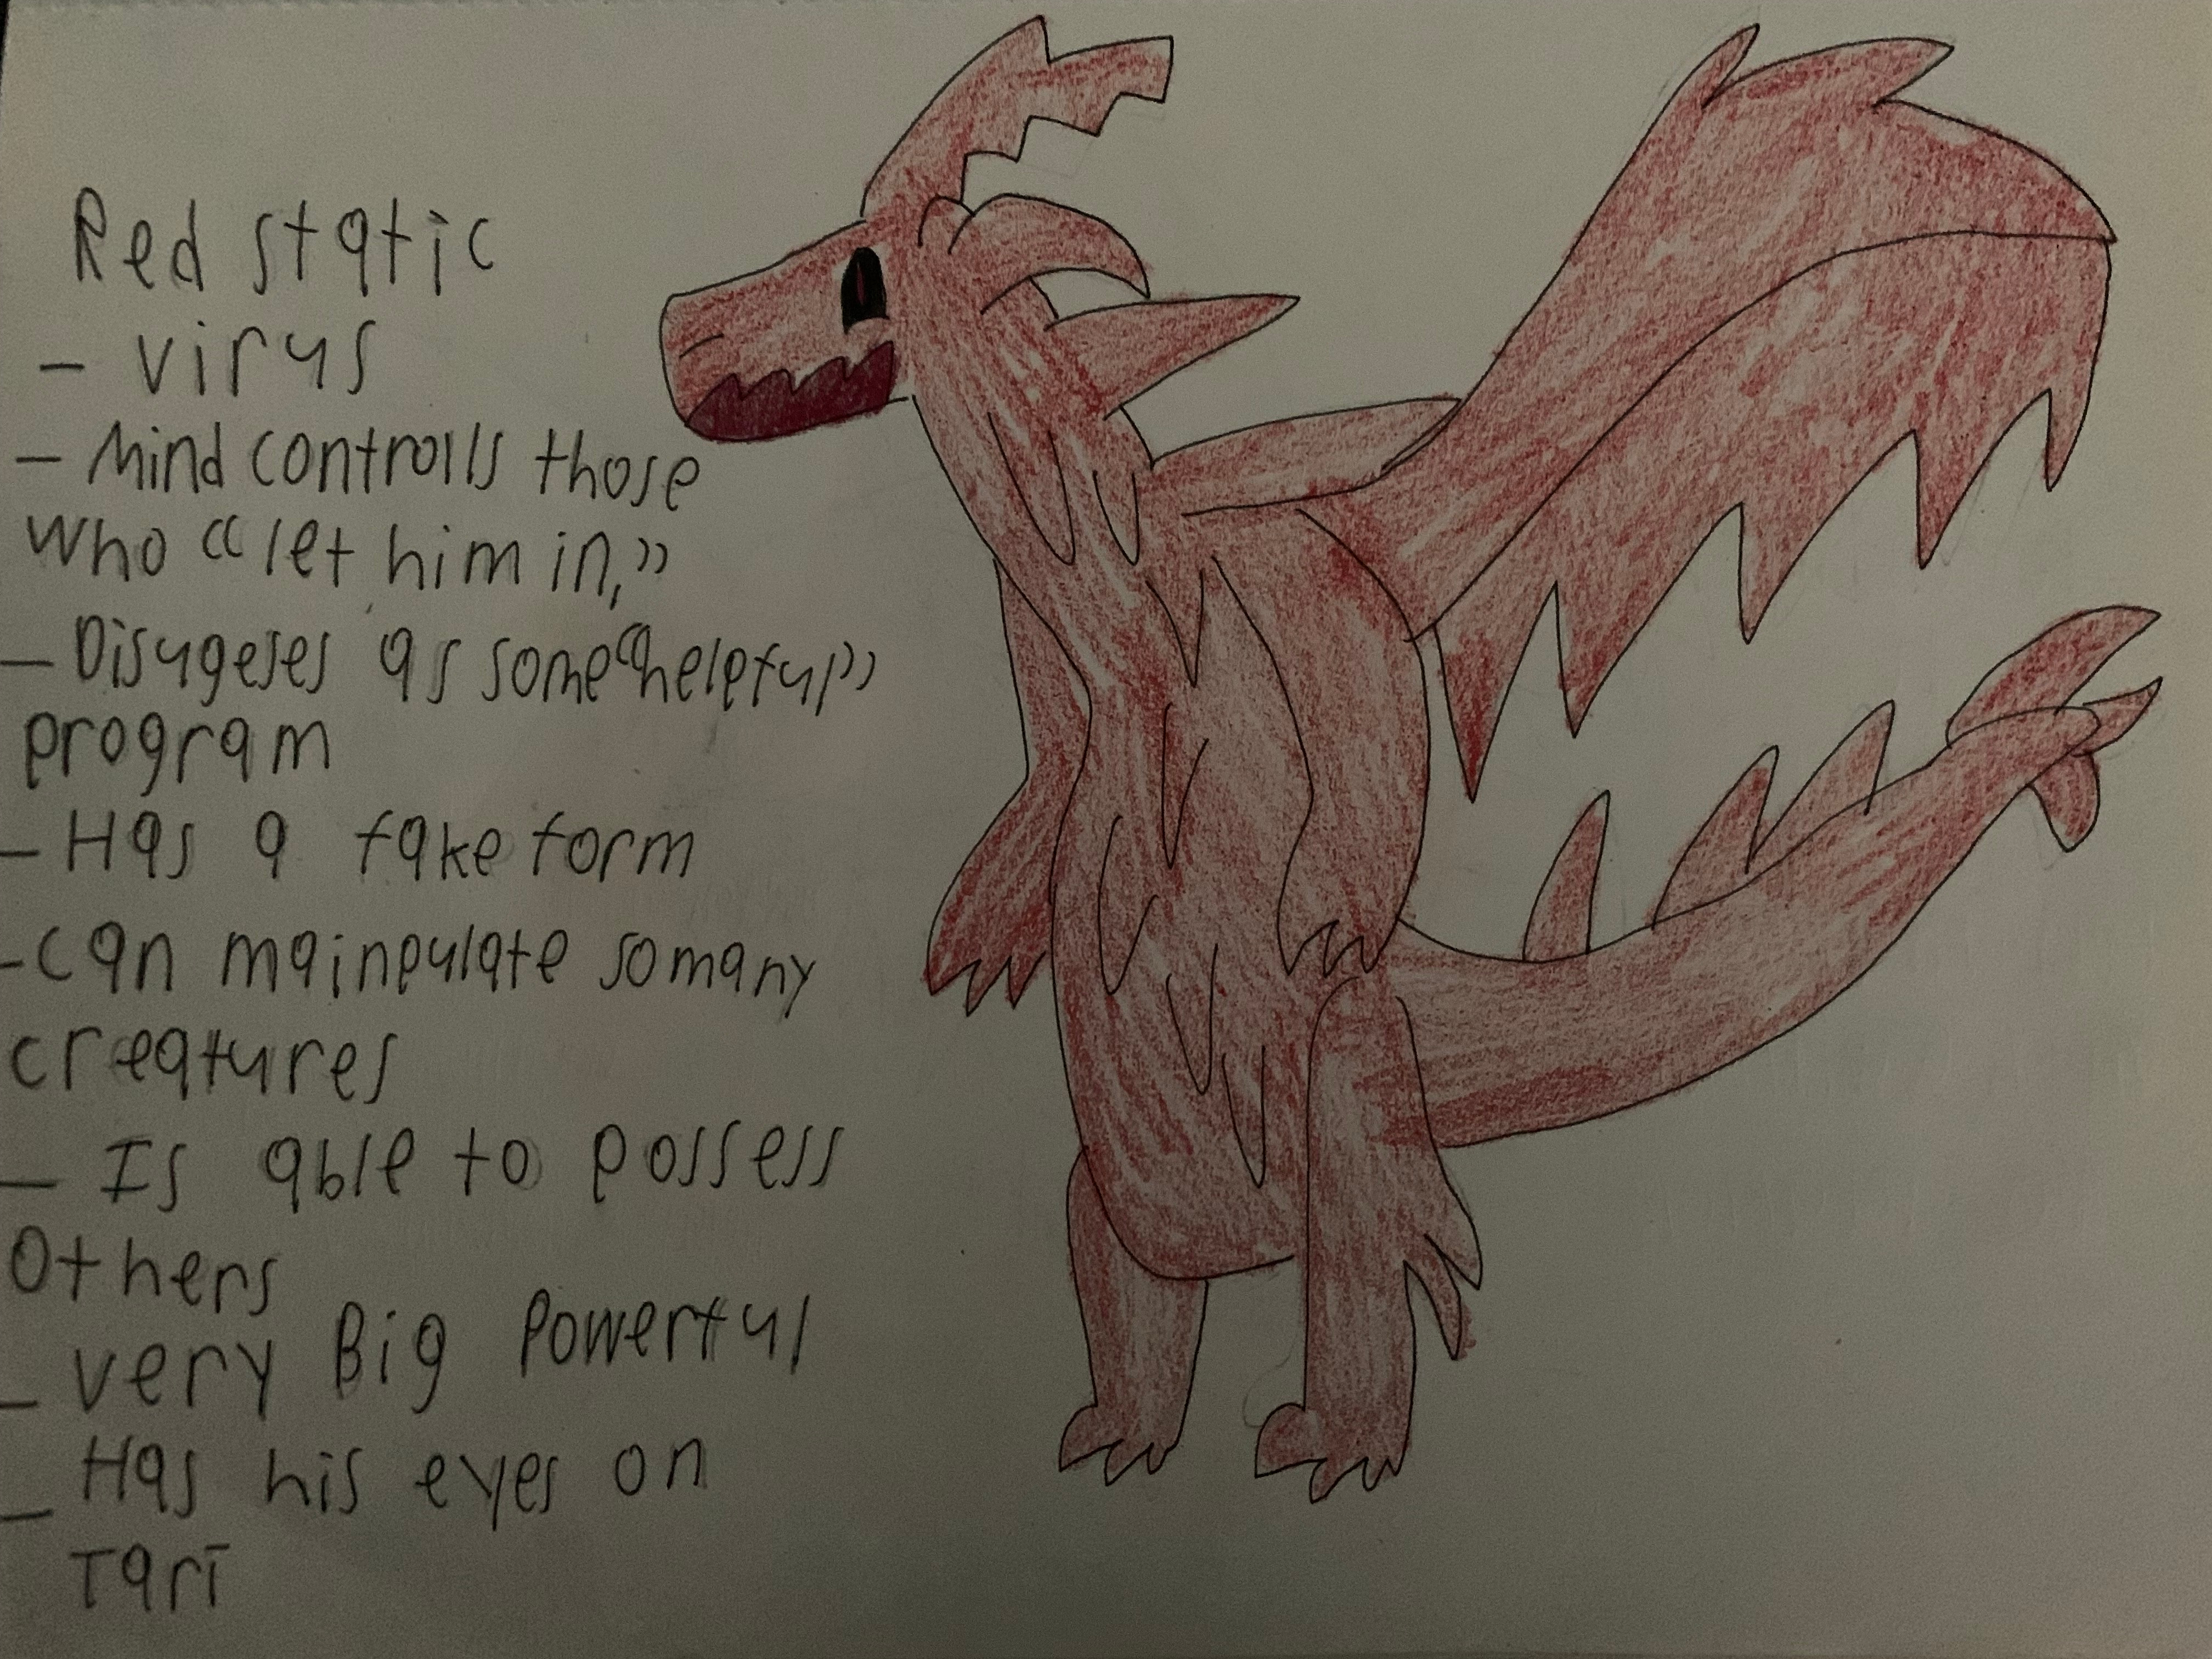 Red static
- virus
- Mind controlls those
who "let him in,"
- Disugeses as some "helepful"
program
- Has a fake form
- can mainpulate so many
creatures
- Is able to possess
Others
- very Big Powerful
- Has his eyes on
Tari